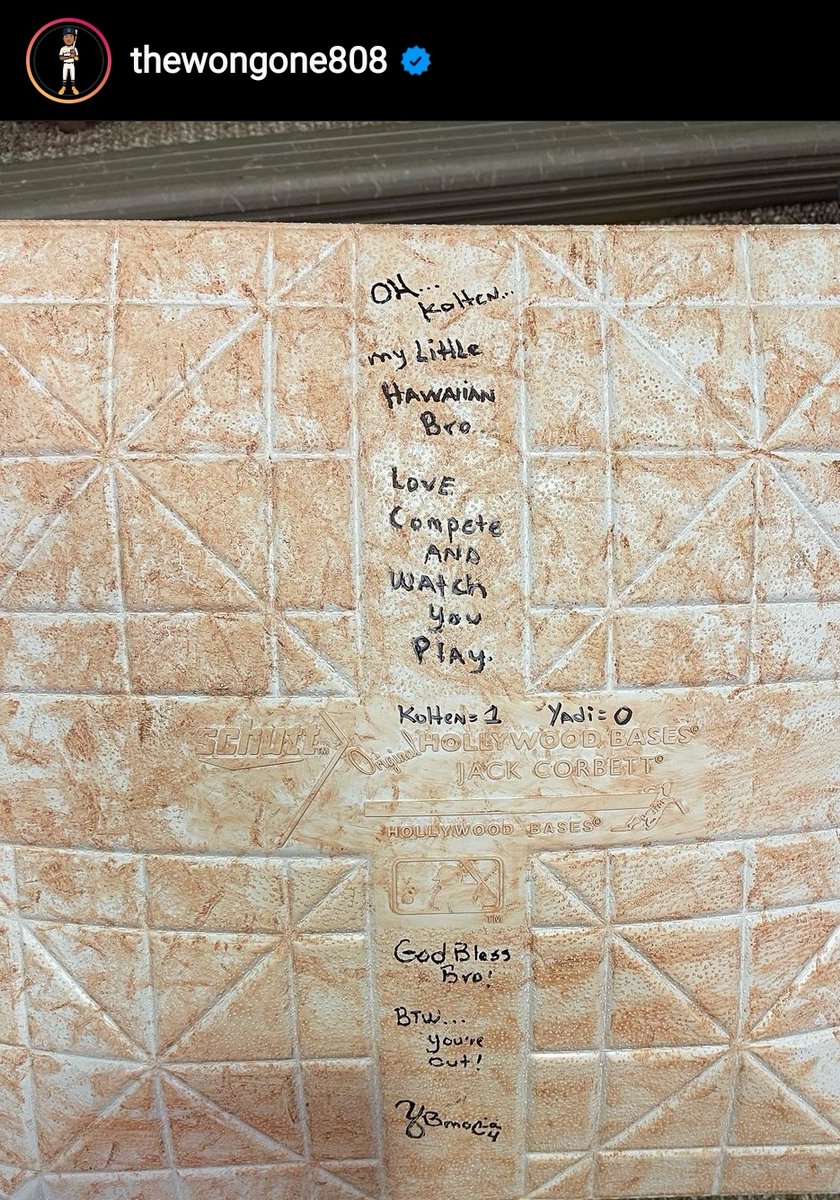 thewongone808
OH...
Kolten...
my Little
HAWAIIAN
Bro..
LOVE
Compete
AND
WATch
you
PlAy.
Kolten=1 Yadi=0
schutt™ Original HOLLYWOOD BASES®
JACK CORBETT®
HOLLYWOOD BASES®
TM
God Bless
Bro!
BTW...
you're
out!